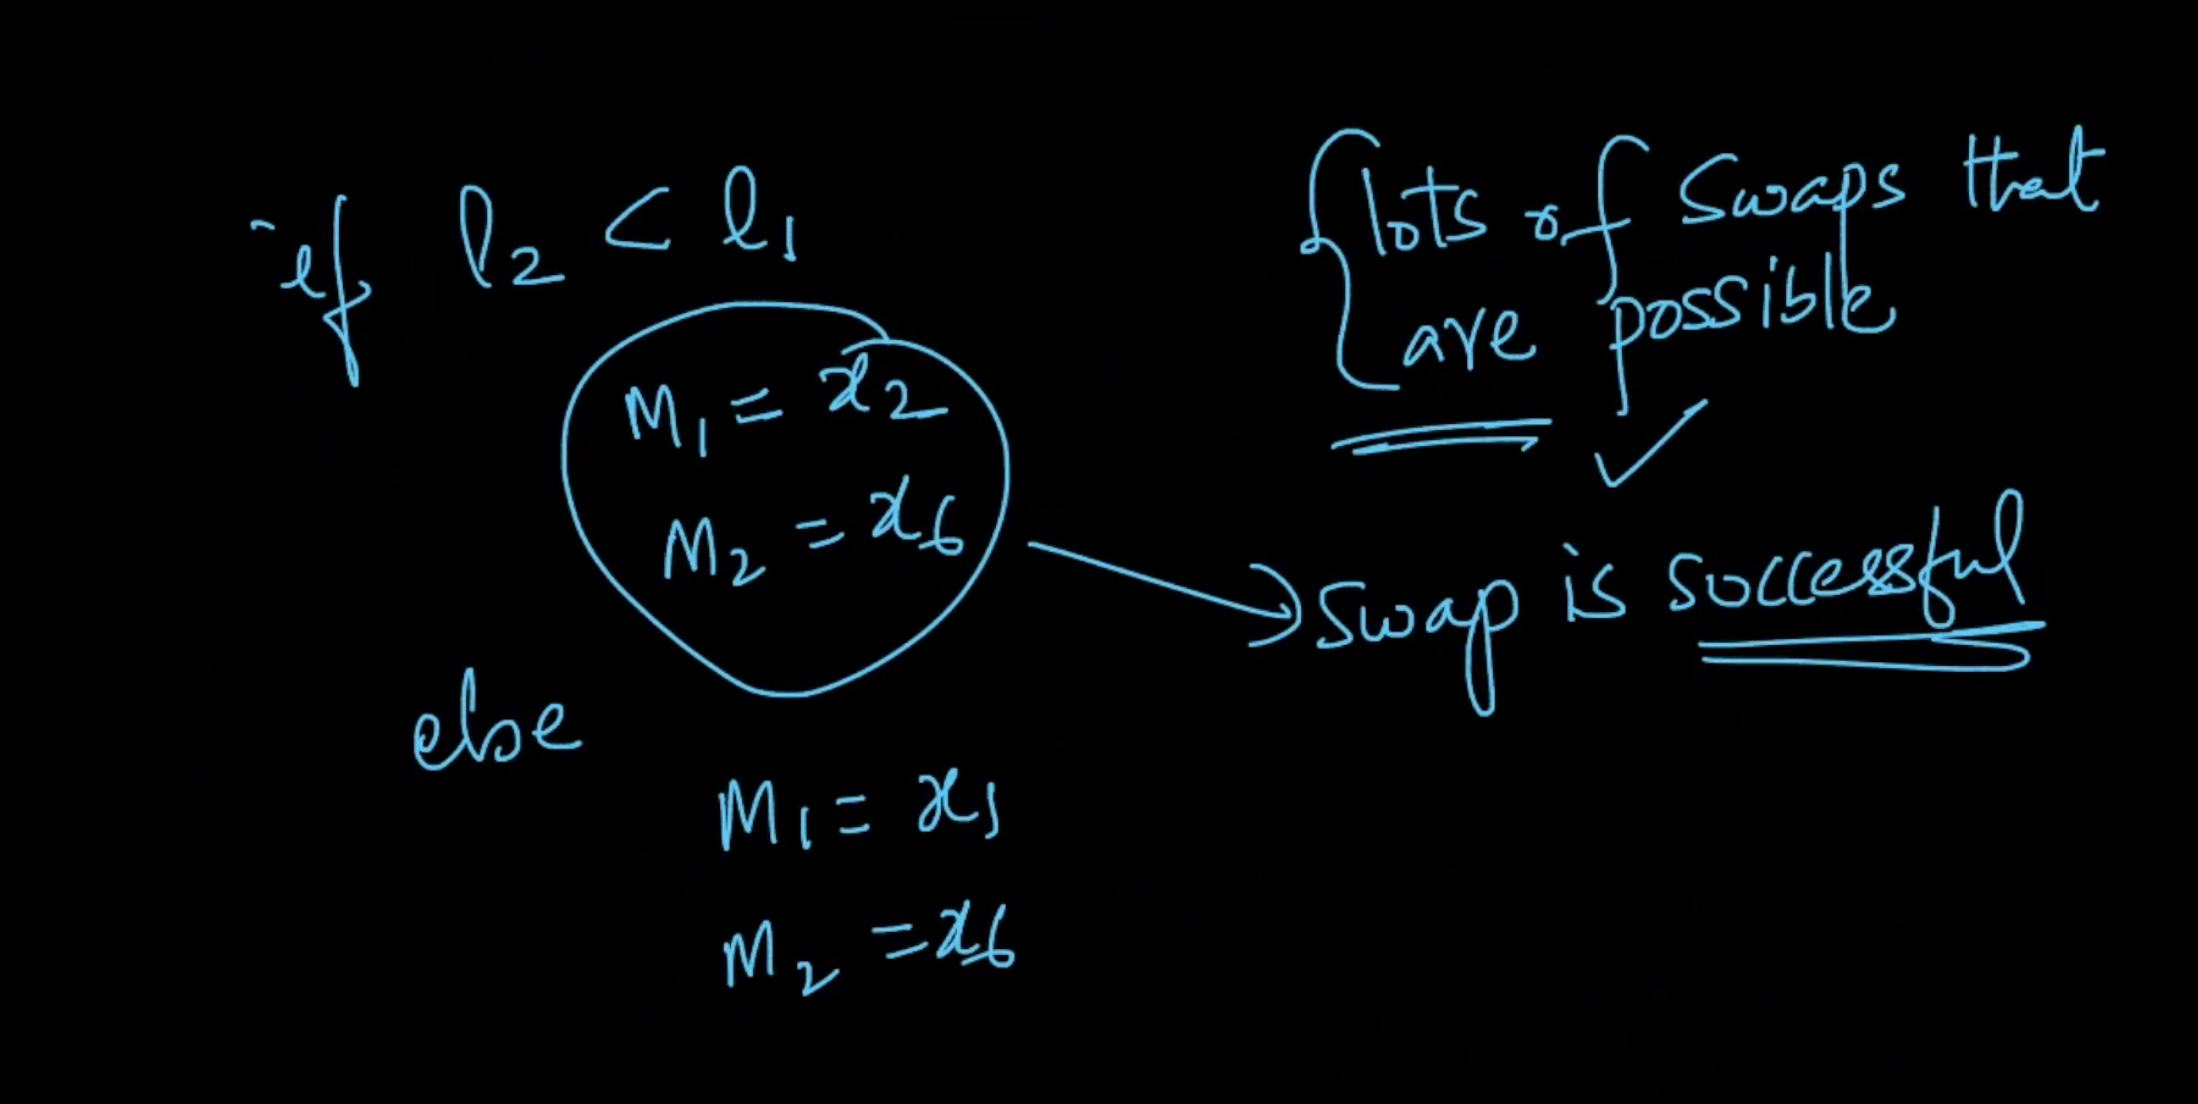 if l₂ < l₁
M₁ = x₂
M₂ = x₆
else
M₁ = x₁
M₂ = x₆
{lots of swaps that
are possible
✓
swap is successful